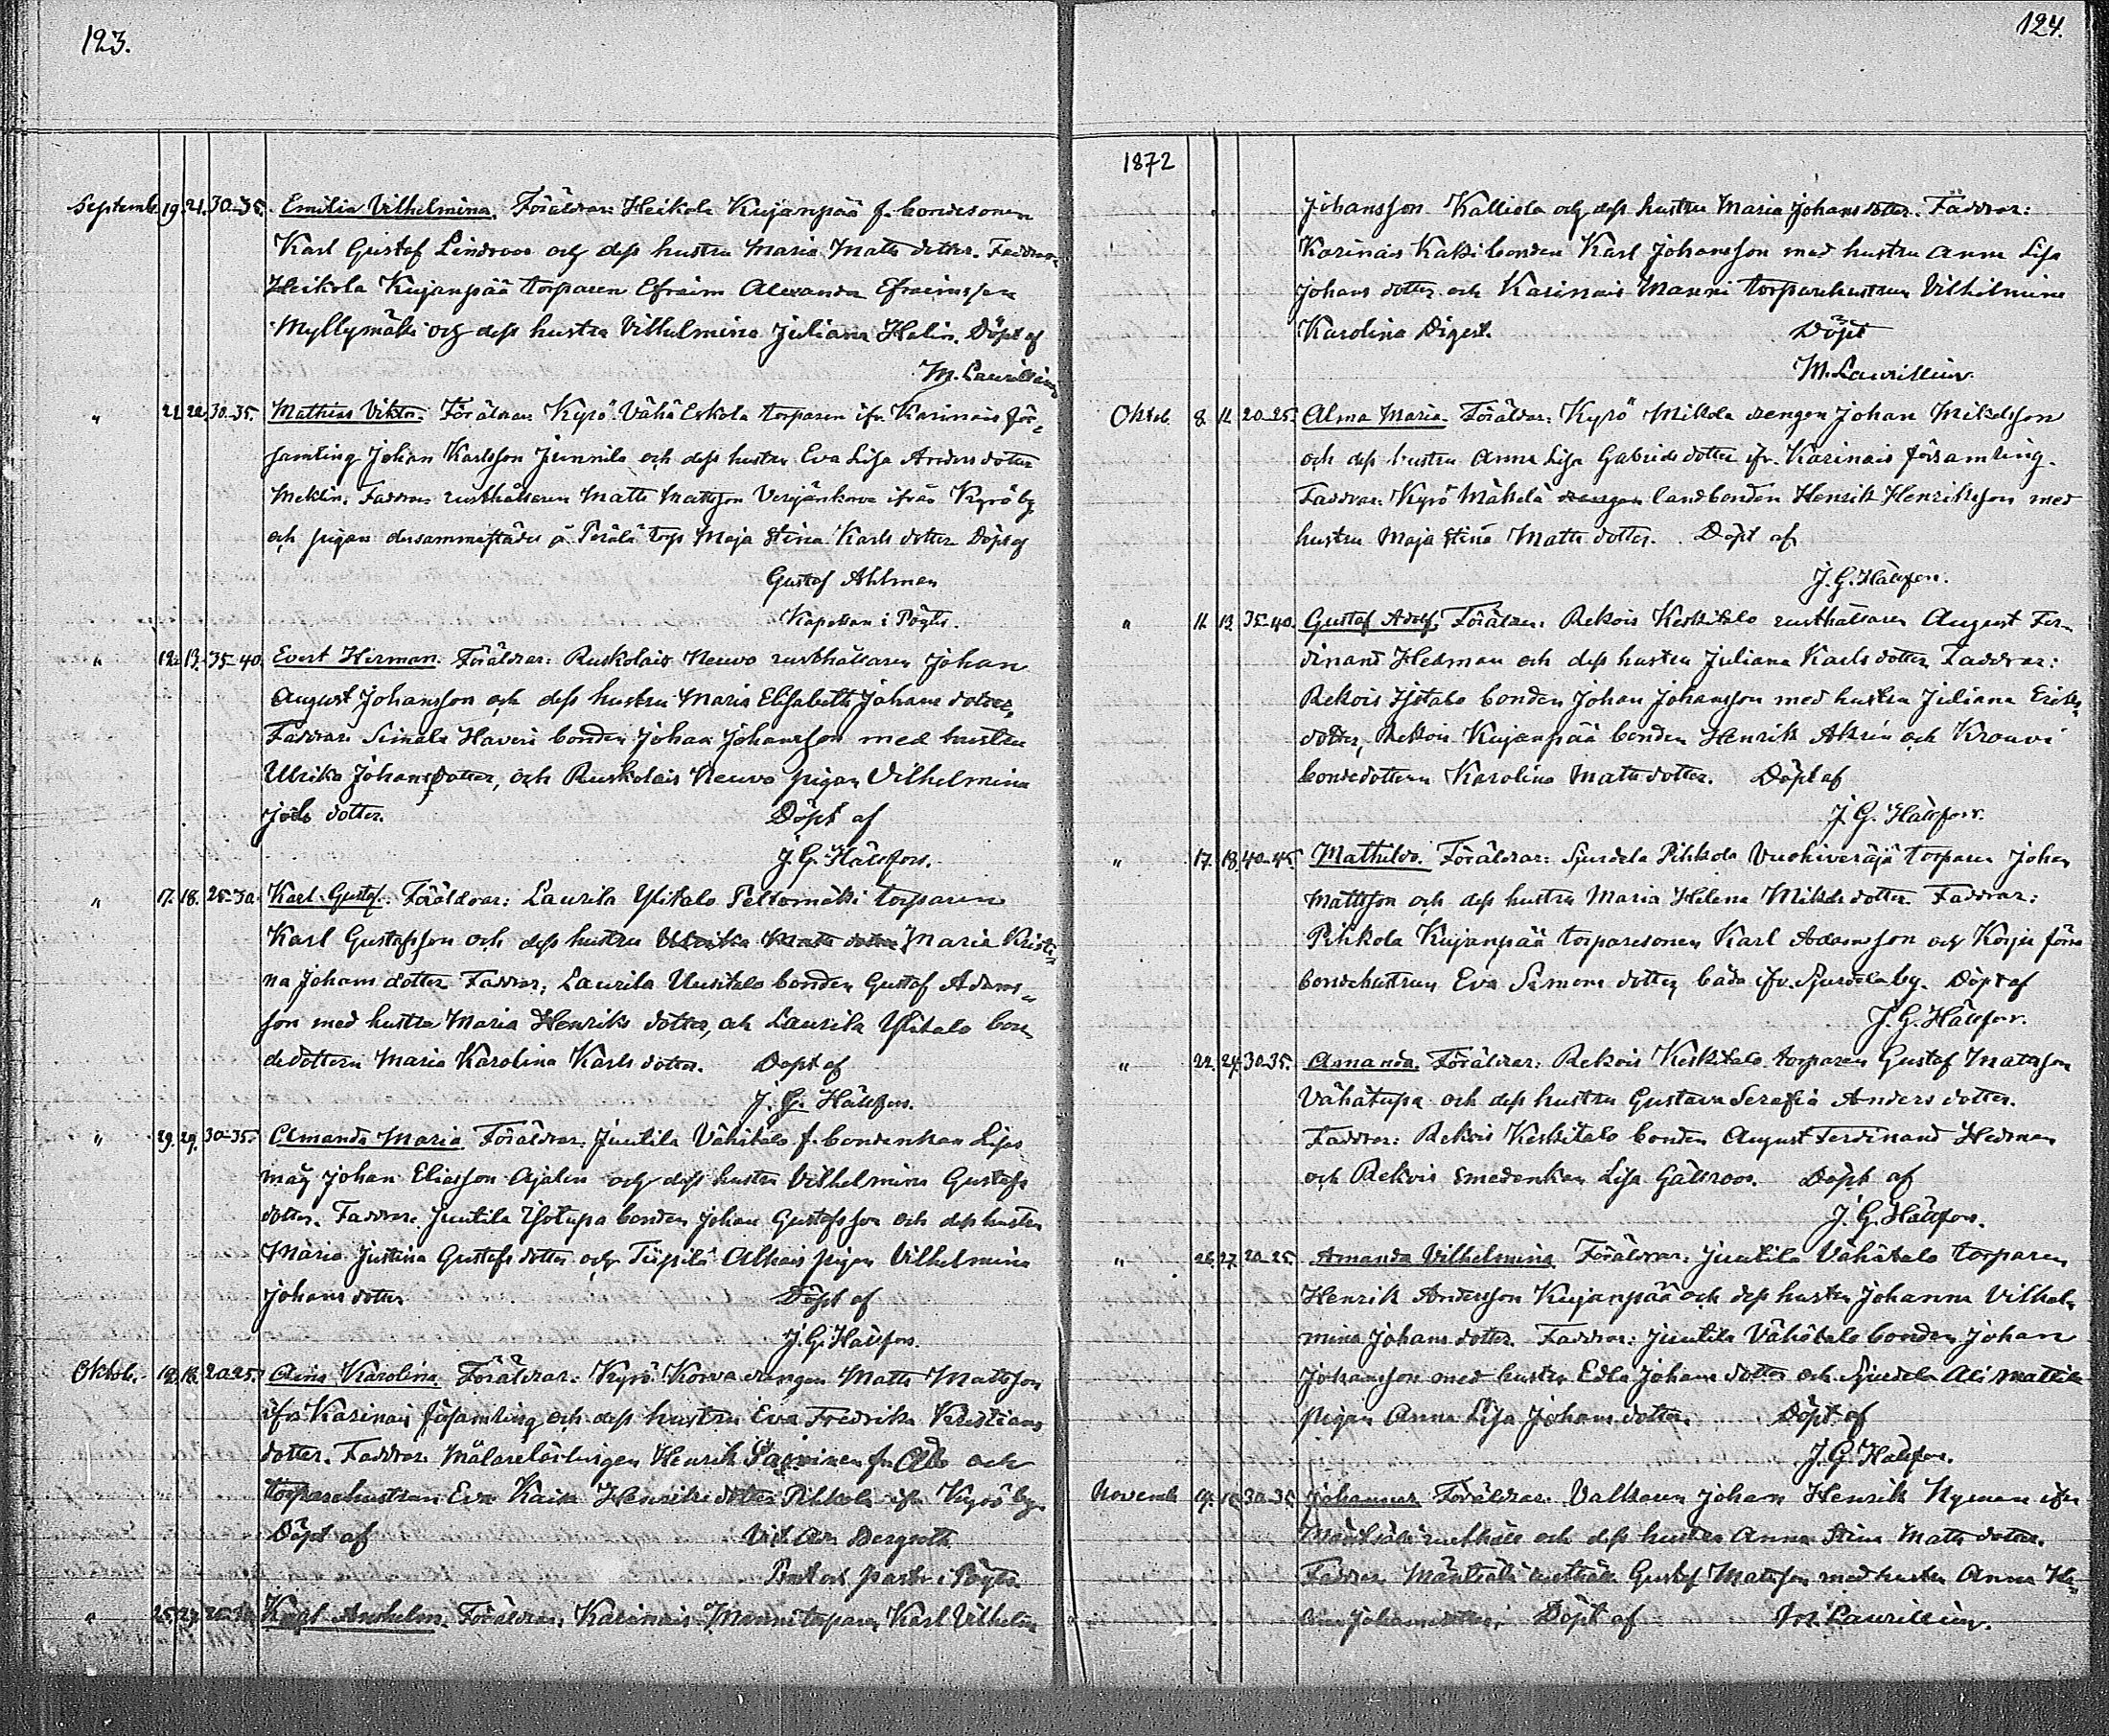 123.
Septemb. 19. 21. 30-35. Emilia Vilhelmina. Föräldrar: Heikola Kujanpää f. bondesonen
Karl Gustaf Lindroos och dess hustru Maria Matts dotter. Faddrar.
Heikola Kujanpää torparen Efraim Alexander Efraimsson
Myllymäki och dess hustru Vilhelmina Juliana Helin. Döpt af
M. Laurellius
" 21. 22. 30-35. Mathias Viktor. Föräldrar: Kyrö Vähä Eskola torparen ifr. Karinais för-
samling Johan Karlsson Junnila och dess hustru Eva Lisa Anders dotter
Meklin. Faddrar rusthållaren Matts Mattsson ifrån Kyrö by
och pigan dersammastädes å Perälä torp Maja Stina Karls dotter Döpt af
Gustaf Ahlman
Kapellan i Pöytis.
" 12. 13. 35-40. Evert Herman. Föräldrar: Ruskolais Neuvo rusthållaren Johan
August Johansson och dess hustru Maria Elisabeth Johans dotter,
Faddrar Seinälä Haveri bonden Johan Johansson med hustru
Ulrika Johansdotter, och Ruskolais Neuvo pigan Vilhelmina
Joels dotter. Döpt af
J. G. Hällfors.
" 17. 18. 25-30. Karl Gustaf. Föräldrar: Laurila Ylitalo Peltomäki torparen
Karl Gustafsson och dess hustru Ulrika Matts dotter Maria Kristi-
na Johans dotter Faddrar: Laurila Uusitalo bonden Gustaf Adams-
son med hustru Maria Henriks dotter, och Laurila Ylitalo bon-
dedottern Maria Karolina Karls dotter. Döpt af
J. G. Hällfors.
" 29. 29. 30-35. Amanda Maria Föräldrar: Juutila Vähitalo f. bondenkan Lisas
måg Johan Eliasson Ajalin och dess hustru Vilhelmina Gustafs
dotter. Faddrar. Juutila Isotupa bonden Johan Gustafsson och dess hustru
Maria Justina Gustafs dotter och Tiipilä Alhais pigan Vilhelmina
Johans dotter Döpt af
J. G. Hällfors.
Oktob. 12. 20-25. Aina Karolina. Föräldrar: Kyrö Korva drengen Matts Mattsson
ifrån Karinais församling och dess hustru Eva Fredrika Kristians
dotter. Faddrar. Målarelärlingen Henrik fr. Åbo och
torparehustrun Eva Kaisa Henriks dotter Pihkola ifr. Kyrö by.
Döpt af Vict. Adr. Bergroth
Prost och pastor i Pöytis.
" 25. 27. Karl Anshelm. Föräldrar: Karinais Manni torparen Karl Vilhelm
124.
1872
Johansson Kalliola och dess hustru Maria Johans dotter. Faddrar:
Karinais Kaksi bonden Karl Johansson med hustru Anna Lisa
Johans dotter och Karinais Manni torparehustrun Vilhelmina
Karolina Digert. Döpt
M. Laurellius.
Oktob. 8. 11. 20-25. Alma Maria. Föräldrar: Kyrö Mikola drengen Johan Mikelsson
och dess hustru Anna Lisa Gabriels dotter ifr. Karinais församling.
Faddrar: Kyrö Mäkelä drengen landbonden Henrik Henriksson med
hustru Maja Stina Matts dotter. Döpt af
J. G. Hällfors.
" 11. 13. 35-40. Gustaf Adolf. Föräldrar: Rekois Keskitalo rusthållaren August Fer-
dinand Hedman och dess hustru Juliana Karls dotter, Faddrar:
Rekois Isotalo bonden Johan Johansson med hustru Juliana Eriks-
dotter, Rekois Kujanpää bonden Henrik Akrén och Krouvi
bondedottern Karolina Matts dotter. Döpt af
J. G. Hällfors.
" 17. 18. 40-45. Mathilda. Föräldrar: Sjurdela Pihkola Vuohiveräjä torparen Johan
Mattsson och dess hustru Maria Helena Mikels dotter. Faddrar:
Pihkola Kujanpää torparesonen Karl Adamsson och Korpi förra
bondehustrun Eva Simons dotter båda ifr. Sjurdela by. Döpt af
J. G. Hällfors.
" 22. 24. 30-35. Amanda. Föräldrar: Rekois Keskitalo torparen Gustaf Mattsson
Vähätupa och dess hustru Gustava Serafia Anders dotter.
Faddrar: Rekois Keskitalo bonden August Ferdinand Hedman
och Rekois smedenkan Lisa Gällroos. Döpt af
J. G. Hällfors.
" 26. 27. 20-25. Amanda Vilhelmina Föräldrar: Juutila Vähätalo torparen
Henrik Andersson Kujanpää och dess hustru Johanna Vilhel-
mina Johans dotter. Faddrar: Juutila Vähätalo bonden Johan
Johansson med hustru Edla Johans dotter och Sjurdela Ali Mattila
pigan Anna Lisa Johans dotter. Döpt af
J. G. Hällfors.
Novemb. 9. 10. 30-35. Johannes Föräldrar: Valkaren Johan Henrik Nyman ifrån
Mäntsälä rusthåll och dess hustru Anna Stina Matts dotter.
Faddrar Mäntsälä rusthåll. Gustaf Mattsson med hustru Anna He-
lena Johans dotter. Döpt af M. Laurellius.